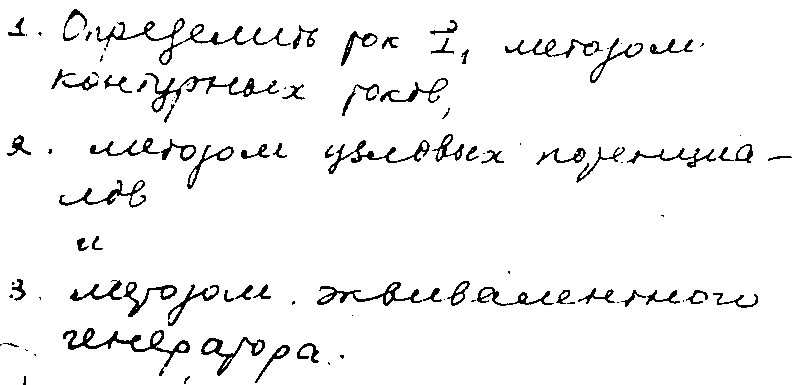 1. Определить ток I₁ методом
контурных токов,
2. методом узловых потенциа-
лов
и
3. методом эквивалентного
генератора.